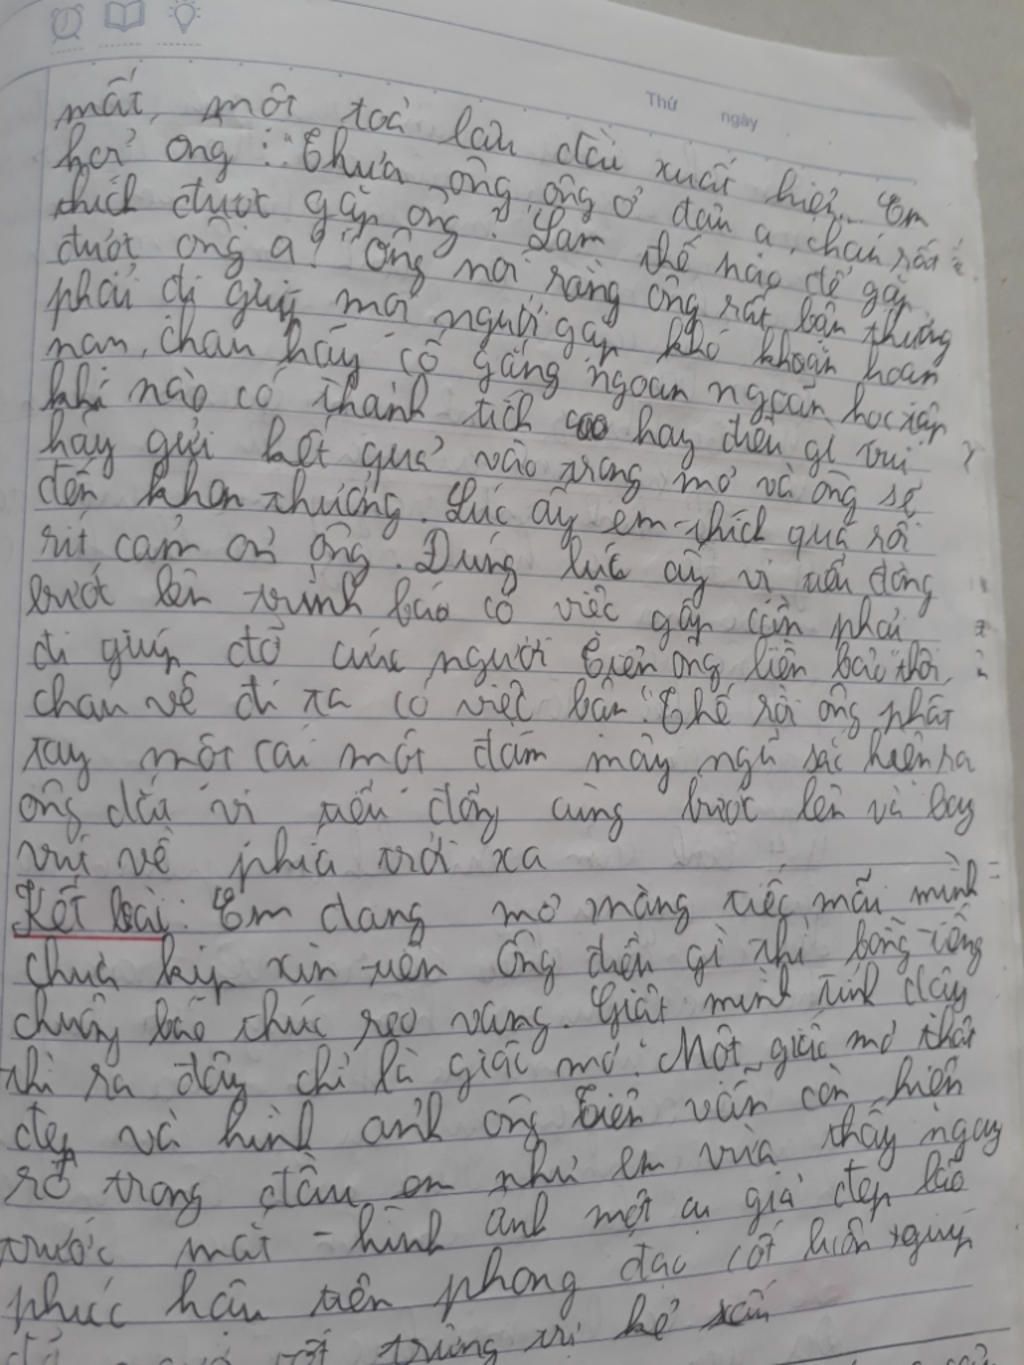 Thứ ngày
mất, một toà lâu đài xuất hiện. Em
hỏi ông: "Thưa ông, ông ở đâu ạ, cháu rất
thích được gặp ông? "Làm thế nào để gặp
được ông ạ?" Ông nói rằng ông rất bận thường
phải đi giúp mọi người gặp khó khăn hoạn
nạn, cháu hãy cố gắng ngoan ngoãn học tập
khi nào có thành tích cao hay điều gì vui
hãy gửi kết quả vào trong mơ và ông sẽ
đến khen thưởng. Lúc ấy em thích quá rối
rít cảm ơn ông. Đúng lúc ấy vị tiểu đồng
bước lên trình báo có việc gấp cần phải
đi giúp đỡ cứu người Tiên ông liền bảo "thôi,
cháu về đi ta có việc bận". Thế rồi ông phất
tay một cái một đám mây ngũ sắc hiện ra
ông dắt vị tiểu đồng cùng bước lên và bay
vút về phía trời xa
Kết bài: Em đang mơ màng tiếc mãi mình
chưa kịp xin tiên ông điều gì thì bỗng tiếng
chuông báo thức reo vang. Giật mình tỉnh dậy
thì ra đây chỉ là giấc mơ. Một giấc mơ thật
đẹp và hình ảnh ông Tiên vẫn còn hiện
rõ trong đầu em như em vừa thấy ngay
trước mắt - hình ảnh một cụ già đẹp lão
phúc hậu tiên phong đạo cốt luôn giúp
trừng trị kẻ xấu